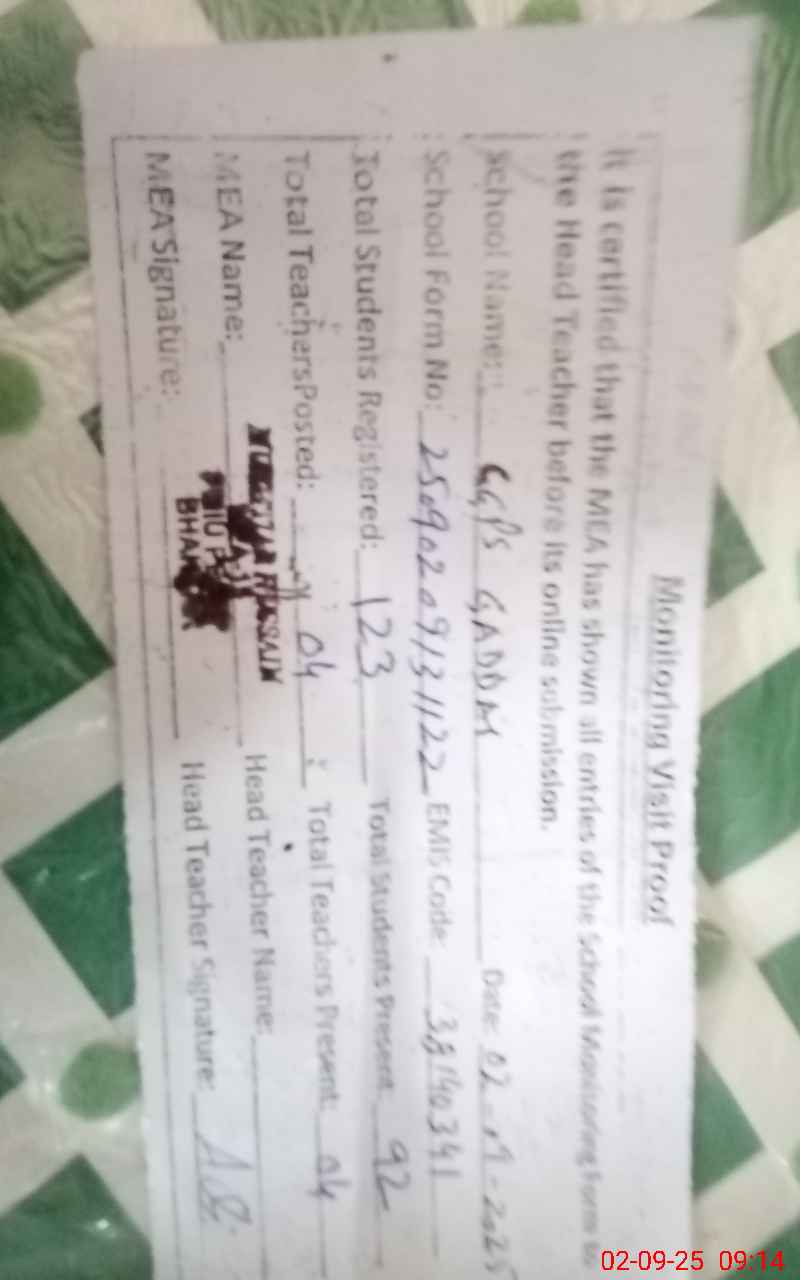 Monitoring Visit Proof
It is certified that the MEA has shown all entries of the School Monitoring Form to
the Head Teacher before its online submission.
School Name: GGPS GADDM Date: 02-09-2025
School Form No: 25090209131122 EMIS Code: 38140341
Total Students Registered: 123 Total Students Present: 92
Total Teachers Posted: 04 Total Teachers Present: 04
MEA Name: HUSSAIN Head Teacher Name:
MEA Signature: Head Teacher Signature:
02-09-25 09:14